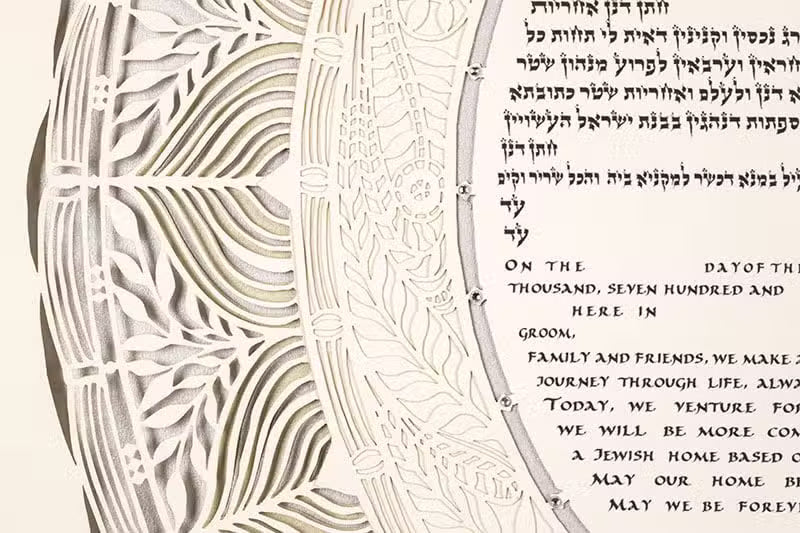 חתן דנן אחריות
רג נכסין וקנינין דאית לי תחות כל
חראין וערבאין לפרוע מנהון שטר
א דנן ולעלם ואחריות שטר כתובתא
ספתות דנהגין בבנת ישראל העשויין
חתן דנן
יל במנא דכשר למקניא ביה והכל שריר וקים
עד
עד
ON THE DAY OF THE
THOUSAND, SEVEN HUNDRED AND
HERE IN
GROOM,
FAMILY AND FRIENDS, WE MAKE
JOURNEY THROUGH LIFE, ALWA
TODAY, WE VENTURE FO
WE WILL BE MORE COM
A JEWISH HOME BASED O
MAY OUR HOME BE
MAY WE BE FOREV